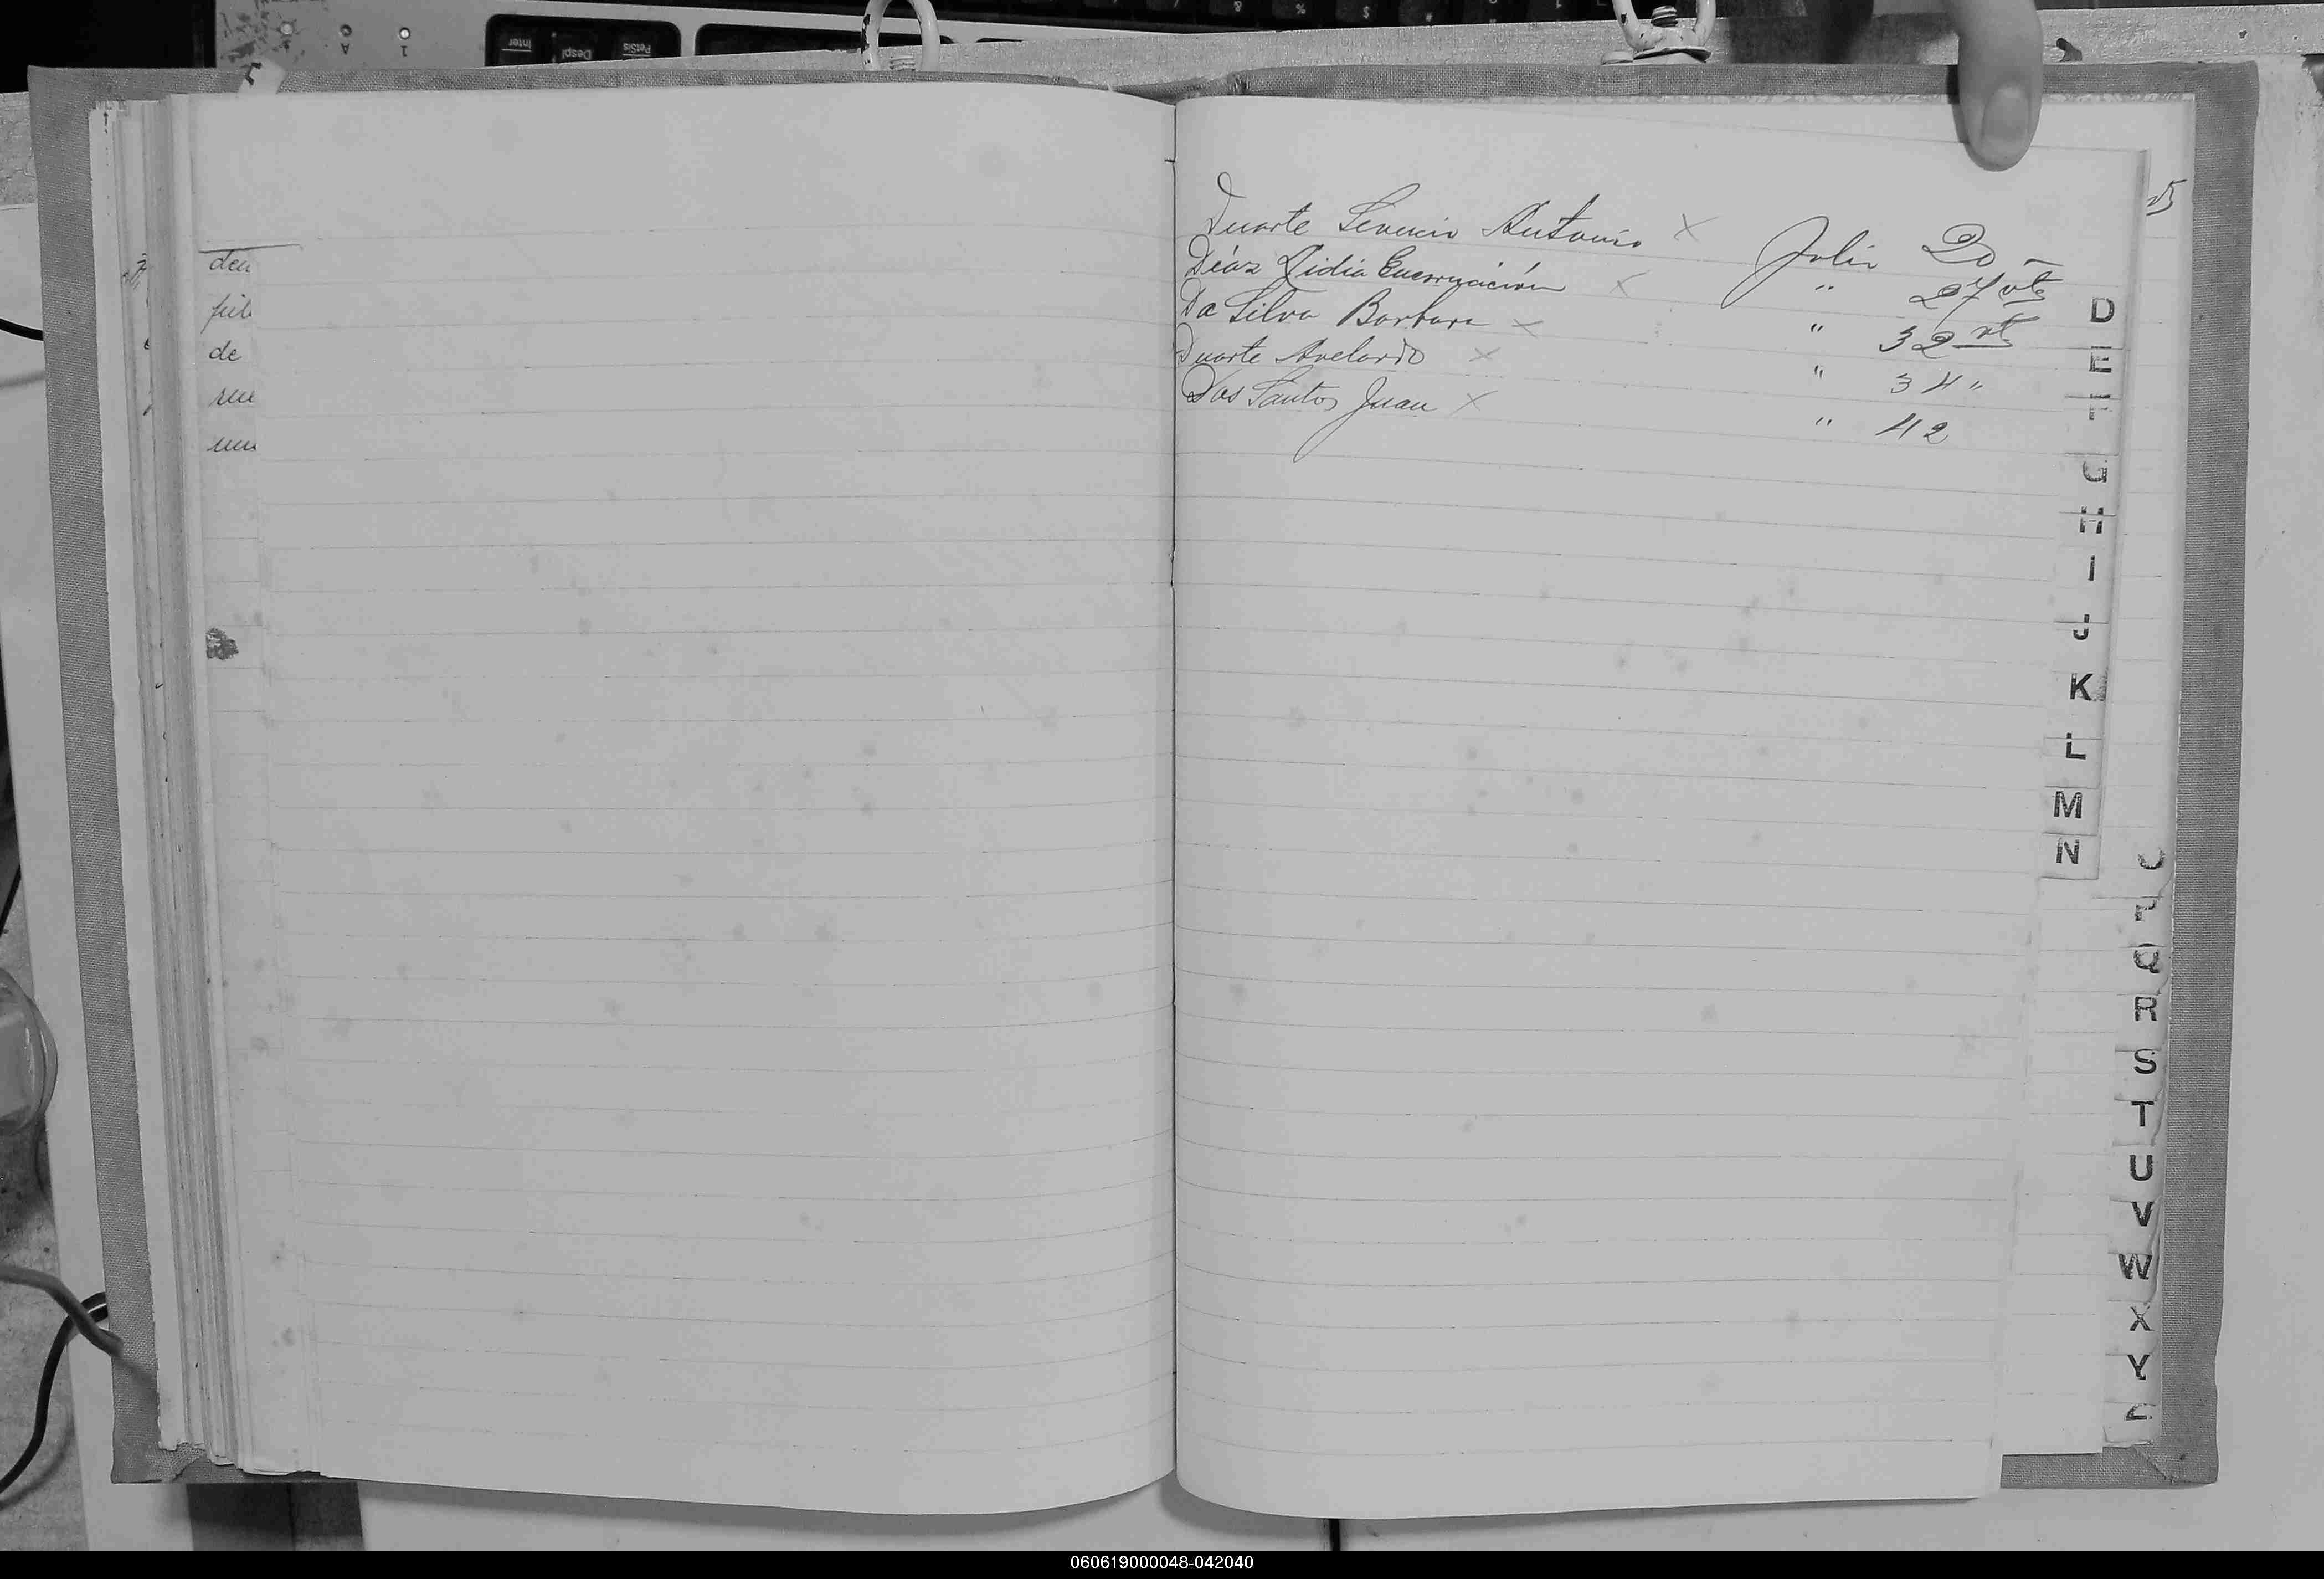 den
fil
de
Duarte Antonio x Julio 20
Díaz Lidia Encarnación x " 27 vto
Da Silva Barbara x " 32 vto
Duarte Avelardo x " 34 "
Dos Santos Juan x " 42
D
E
F
G
H
I
J
K
L
M
N
O
P
Q
R
S
T
U
V
W
X
Y
Z
Inter
Despl
PetSis
060619000048-042040